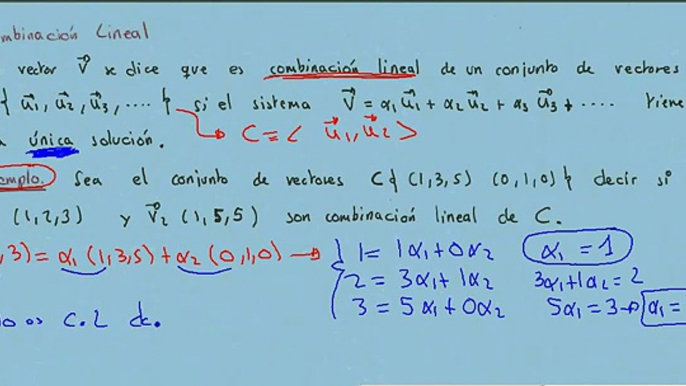 mbinación Lineal
vector V⃗ se dice que es combinación lineal de un conjunto de vectores
{ u⃗₁, u⃗₂, u⃗₃, .... } si el sistema V⃗ = α₁u⃗₁ + α₂u⃗₂ + α₃u⃗₃ + .... tiene
a única solución. C ≡ < u⃗₁, u⃗₂ >
emplo. Sea el conjunto de vectores C{ (1,3,5) (0,1,0) } decir si
(1,2,3) y V⃗₂ (1,5,5) son combinación lineal de C.
,3) = α₁ (1,3,5) + α₂ (0,1,0) → { 1 = 1α₁ + 0α₂ α₁ = 1
2 = 3α₁ + 1α₂ 3α₁ + 1α₂ = 2
3 = 5α₁ + 0α₂ 5α₁ = 3 → α₁ =
no es C.L de.